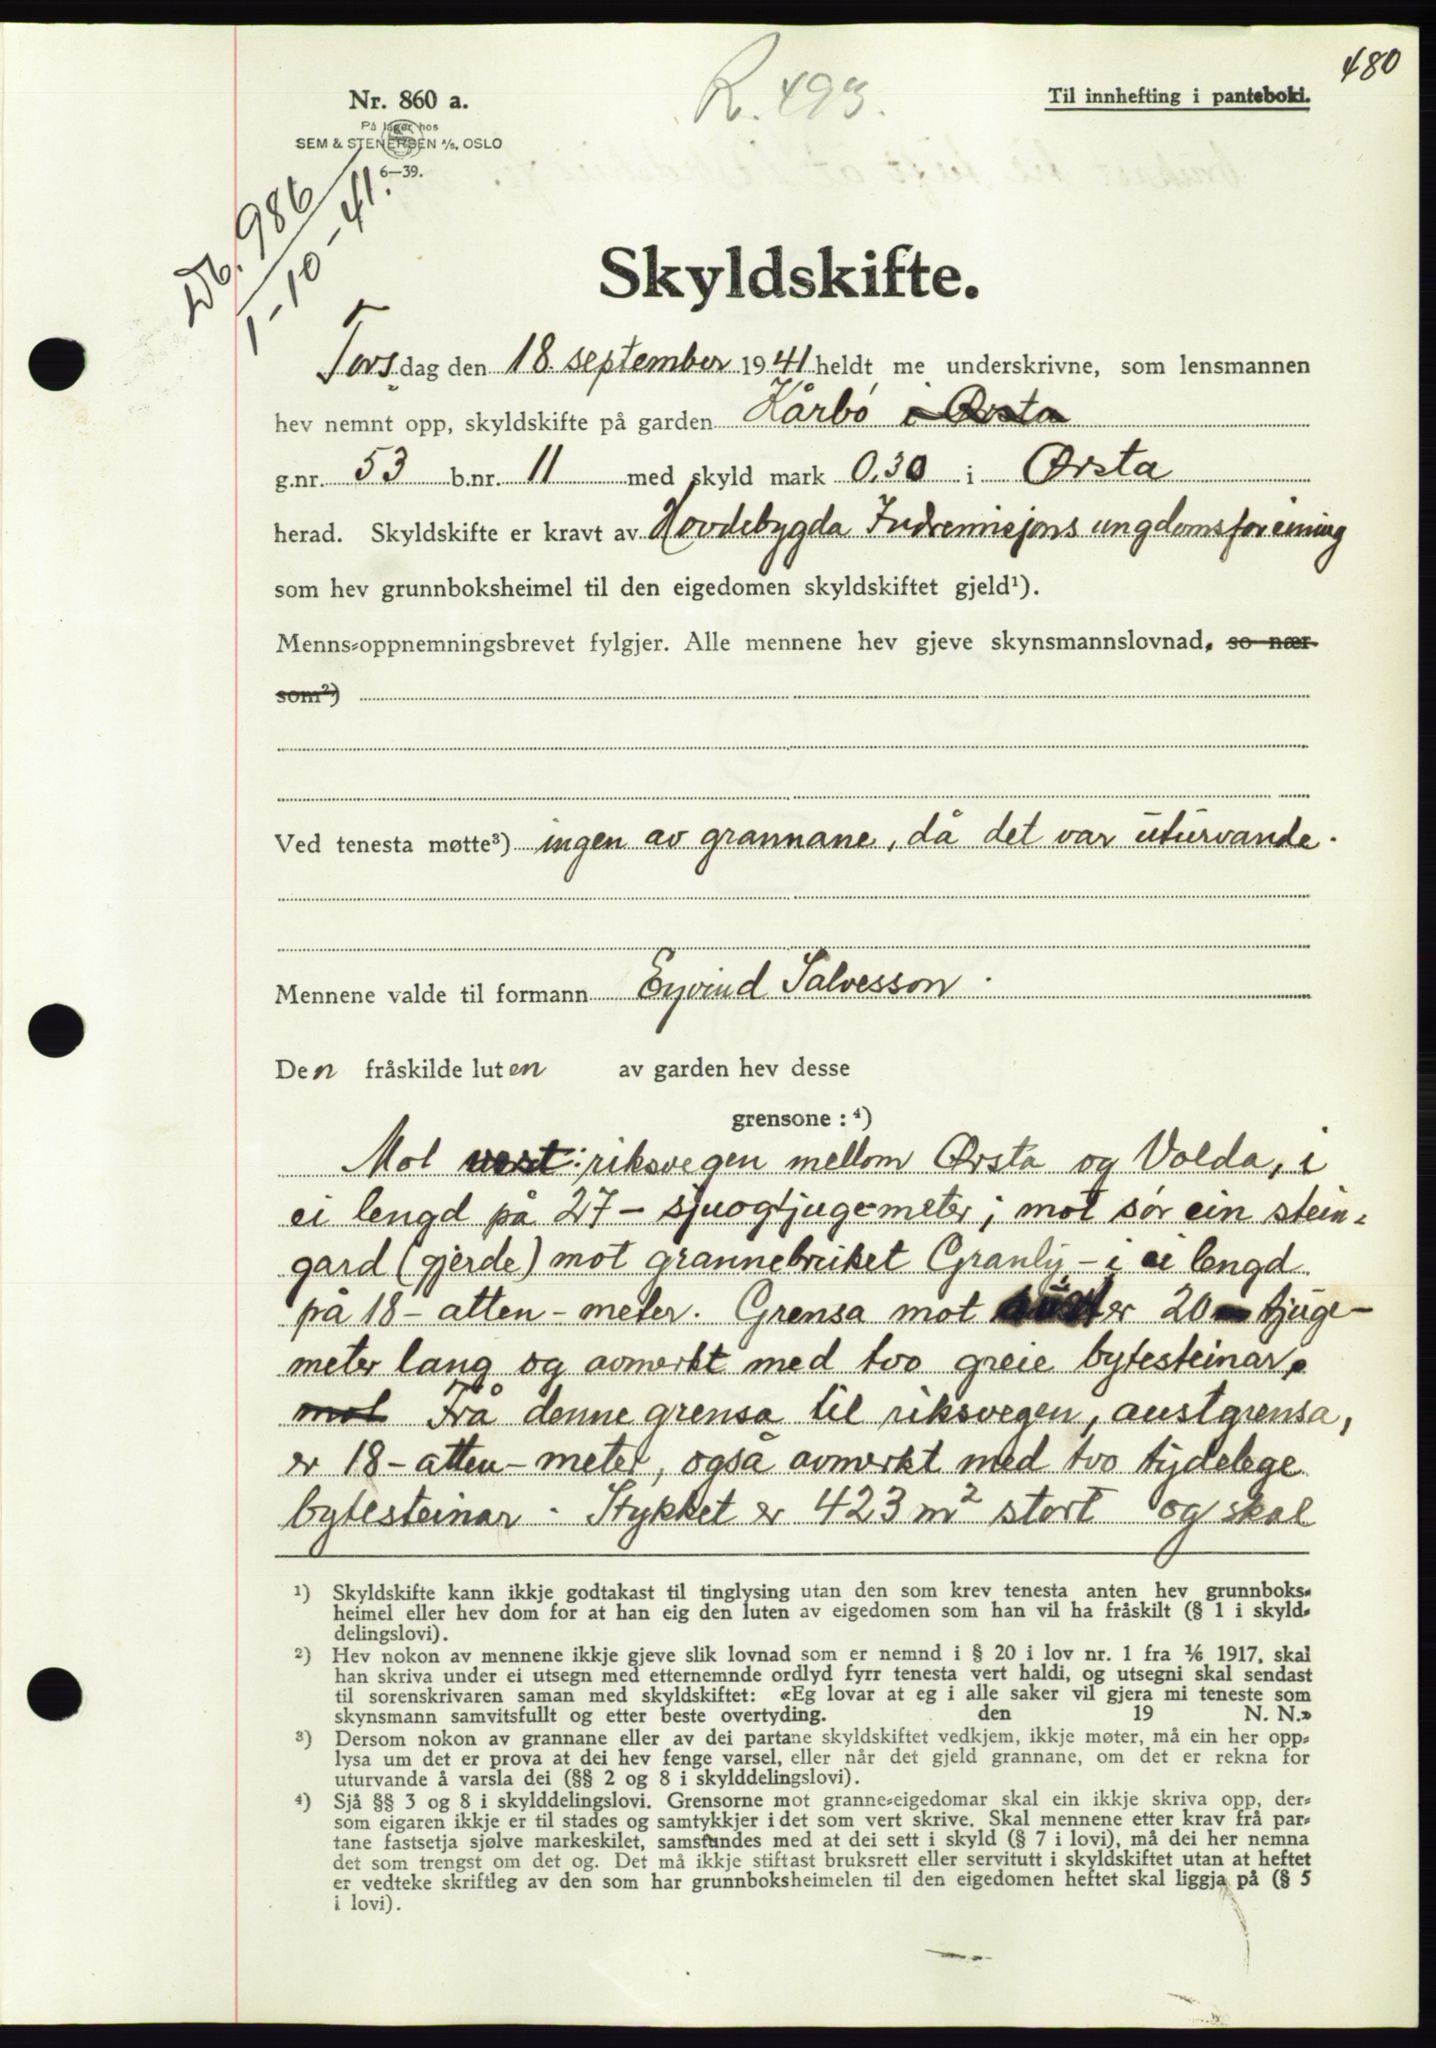 480
R. 493.
Nr. 860 a.
Til innhefting i panteboki.
På lager hos
SEM & STENERSEN A/S, OSLO
6—39.
Db. 986
1-10-41.
Skyldskifte.
Torsdag den 18. september 1941 heldt me underskrivne, som lensmannen
hev nemnt opp, skyldskifte på garden Kårbø i Ørsta
g.nr. 53 b.nr. 11 med skyld mark 0,30 i Ørsta
herad. Skyldskifte er kravt av Hovdebygda Indremisjons ungdomsforeining
som hev grunnboksheimel til den eigedomen skyldskiftet gjeld¹).
Menns-oppnemningsbrevet fylgjer. Alle mennene hev gjeve skynsmannslovnad, so nær
som²)
Ved tenesta møtte³) ingen av grannane, då det var uturvande.
Mennene valde til formann Eyvind Salvesson.
Den fråskilde luten av garden hev desse
grensone: ⁴)
Mot vest: riksvegen mellom Ørsta og Volda, i
ei lengd på 27 – sjuogtjuge meter; mot sør ein stein-
gard (gjerde) mot grannebruket Granly – i ei lengd
på 18 – atten – meter. Grensa mot aust er 20 – tjuge –
meter lang og avmerkt med two greie bytesteinar.
mot Frå denne grensa til riksvegen, austgrensa,
er 18 – atten – meter, også avmerkt med tvo tydelege
bytesteinar. Stykket er 423 m² stort og skal
¹) Skyldskifte kann ikkje godtakast til tinglysing utan den som krev tenesta anten hev grunnboks-
heimel eller hev dom for at han eig den luten av eigedomen som han vil ha fråskilt (§ 1 i skyld-
delingslovi).
²) Hev nokon av mennene ikkje gjeve slik lovnad som er nemnd i § 20 i lov nr. 1 fra 1/6 1917, skal
han skriva under ei utsegn med etternemnde ordlyd fyrr tenesta vert haldi, og utsegni skal sendast
til sorenskrivaren saman med skyldskiftet: «Eg lovar at eg i alle saker vil gjera mi teneste som
skynsmann samvitsfullt og etter beste overtyding. den 19 N. N.»
³) Dersom nokon av grannane eller av dei partane skyldskiftet vedkjem, ikkje møter, må ein her opp-
lysa um det er prova at dei hev fenge varsel, eller når det gjeld grannane, om det er rekna for
uturvande å varsla dei (§§ 2 og 8 i skylddelingslovi).
⁴) Sjå §§ 3 og 8 i skylddelingslovi. Grensorne mot granne-eigedomar skal ein ikkje skriva opp, der-
som eigaren ikkje er til stades og samtykkjer i det som vert skrive. Skal mennene etter krav frå par-
tane fastsetja sjølve markeskilet, samstundes med at dei sett i skyld (§ 7 i lovi), må dei her nemna
det som trengst om det og. Det må ikkje stiftast bruksrett eller servitutt i skyldskiftet utan at heftet
er vedteke skriftleg av den som har grunnboksheimelen til den eigedomen heftet skal liggja på (§ 5
i lovi).